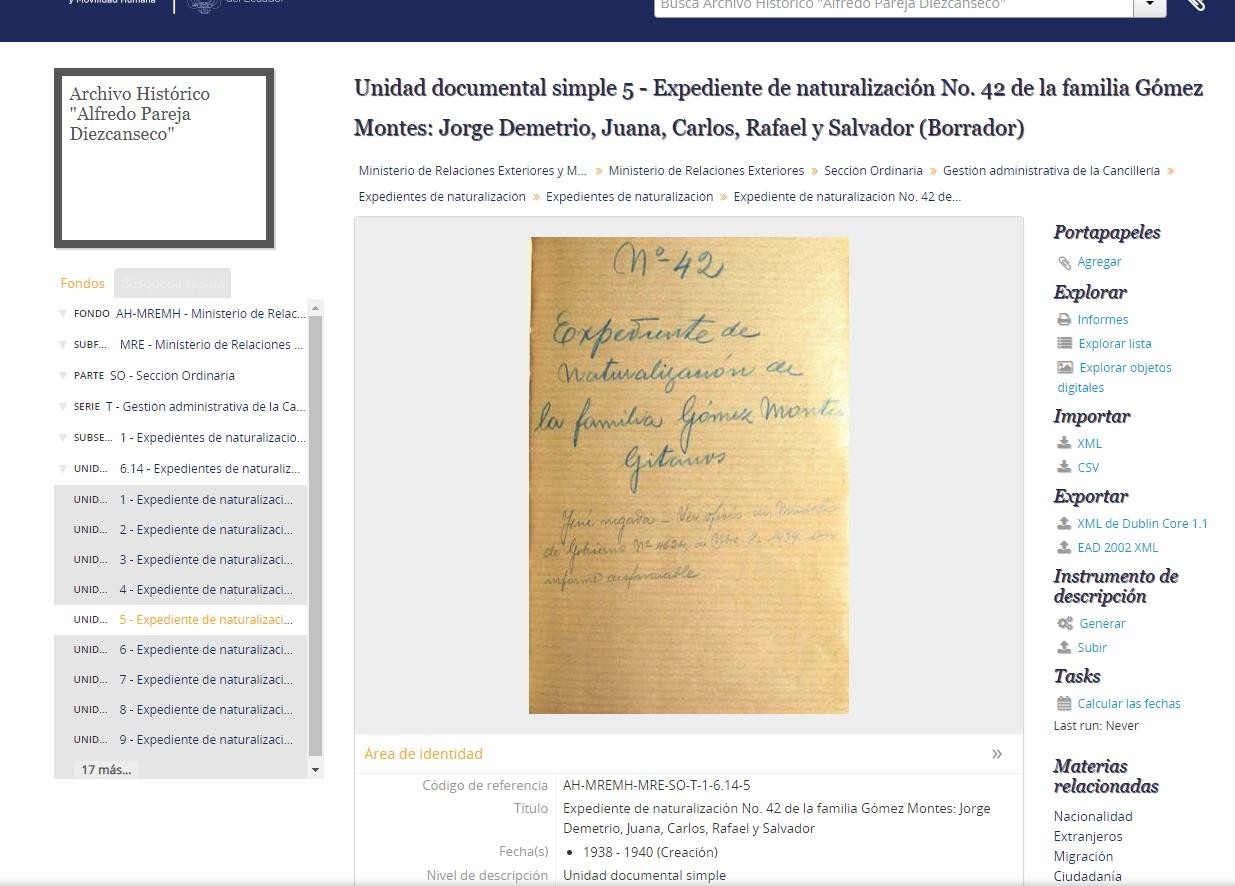 y Movilidad Humana
del Ecuador
Busca Archivo Histórico "Alfredo Pareja Diezcanseco"
Archivo Histórico
"Alfredo Pareja
Diezcanseco"
Fondos
Búsqueda rápida
FONDO AH-MREMH - Ministerio de Relac...
SUBF... MRE - Ministerio de Relaciones ...
PARTE SO - Sección Ordinaria
SERIE T - Gestión administrativa de la Ca...
SUBSE... 1 - Expedientes de naturalizacio...
UNID... 6.14 - Expedientes de naturaliz...
UNID... 1 - Expediente de naturalizaci...
UNID... 2 - Expediente de naturalizaci...
UNID... 3 - Expediente de naturalizaci...
UNID... 4 - Expediente de naturalizaci...
UNID... 5 - Expediente de naturalizaci...
UNID... 6 - Expediente de naturalizaci...
UNID... 7 - Expediente de naturalizaci...
UNID... 8 - Expediente de naturalizaci...
UNID... 9 - Expediente de naturalizaci...
17 más...
Unidad documental simple 5 - Expediente de naturalización No. 42 de la familia Gómez
Montes: Jorge Demetrio, Juana, Carlos, Rafael y Salvador (Borrador)
Ministerio de Relaciones Exteriores y M... » Ministerio de Relaciones Exteriores » Sección Ordinaria » Gestión administrativa de la Cancillería »
Expedientes de naturalización » Expedientes de naturalización » Expediente de naturalización No. 42 de...
Nº 42
Expediente de
Naturalización de
la familia Gómez Montes
Gitanos
negada - Ver oficio
de Gobierno Nº 4624,
informe desfavorable.
Área de identidad »
Código de referencia AH-MREMH-MRE-SO-T-1-6.14-5
Título Expediente de naturalización No. 42 de la familia Gómez Montes: Jorge
Demetrio, Juana, Carlos, Rafael y Salvador
Fecha(s) • 1938 - 1940 (Creación)
Nivel de descripción Unidad documental simple
Portapapeles
Agregar
Explorar
Informes
Explorar lista
Explorar objetos
digitales
Importar
XML
CSV
Exportar
XML de Dublin Core 1.1
EAD 2002 XML
Instrumento de
descripción
Generar
Subir
Tasks
Calcular las fechas
Last run: Never
Materias
relacionadas
Nacionalidad
Extranjeros
Migración
Ciudadanía